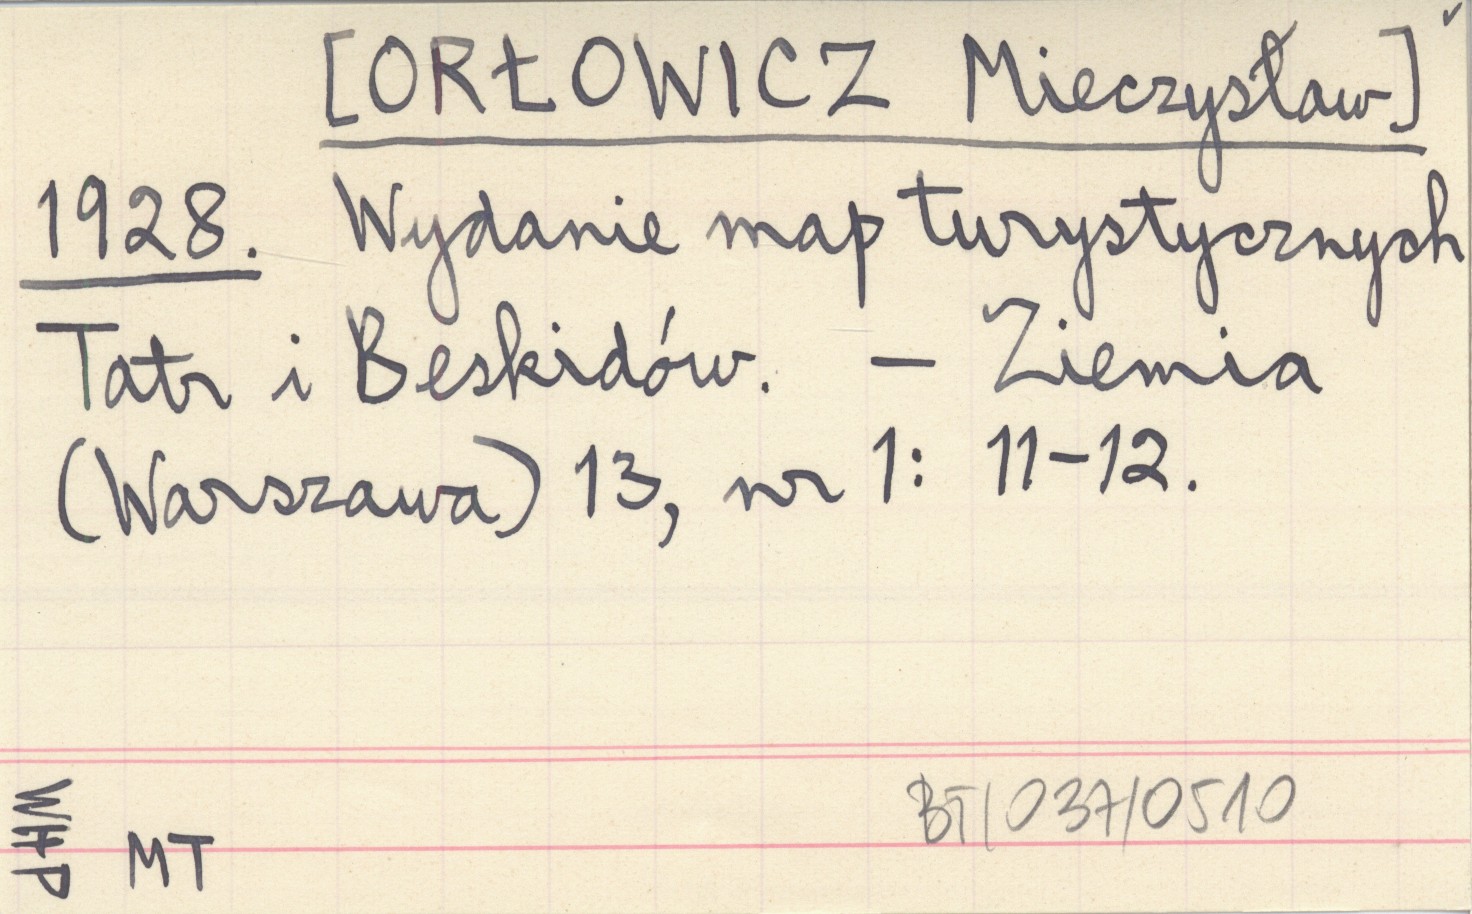 [ORŁOWICZ Mieczysław]
1928. Wydanie map turystycznych
Tatr i Beskidów. – Ziemia
(Warszawa) 13, nr 1: 11–12.
BT/037/0510
WHP
MT